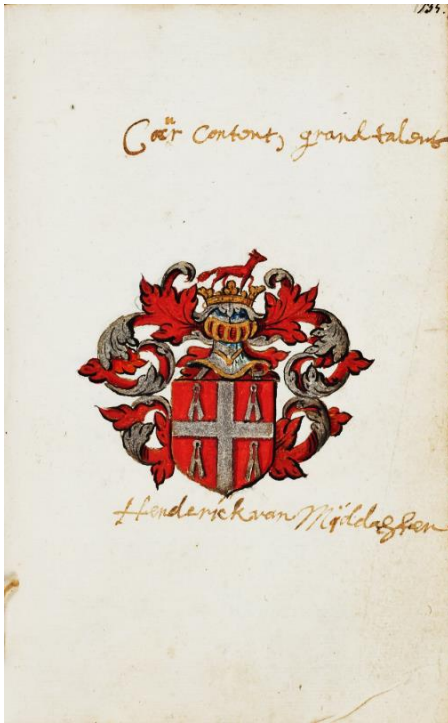 134.
Coür Content, grand talent
Henderick van Middachten